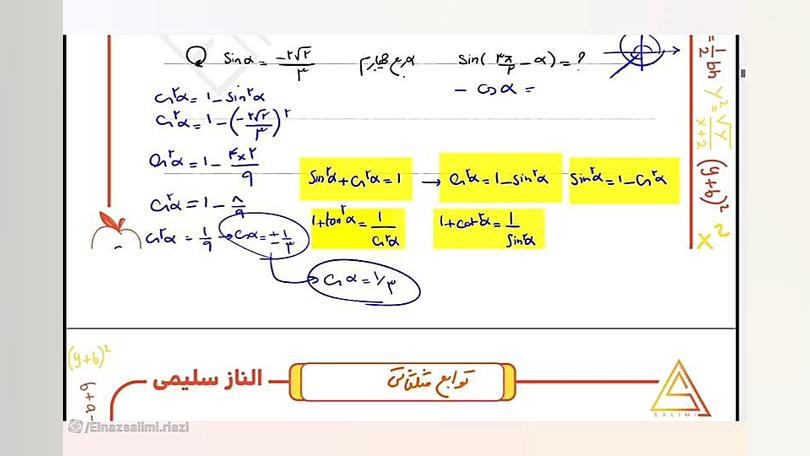 sinα = -۲√۲/۳    sin(۳π/۲ - α) = ?
- cosα =
cos²α = ۱ - sin²α
cos²α = ۱ - (-۲√۲/۳)²
cos²α = ۱ - ۴×۲/۹
cos²α = ۱ - ۸/۹
cos²α = ۱/۹ → cosα = ±۱/۳
cosα = ۱/۳
sin²α + cos²α = 1 → cos²α = 1 - sin²α    sin²α = 1 - cos²α
1 + tan²α = 1/cos²α    1 + cot²α = 1/sin²α
= 1/2 bh
y² = √y/x+2
(y+b)²
x²
(y+b)²
b+a-
الناز سلیمی
توابع مثلثاتی
SALIMI
/Elnazsalimi.riazi